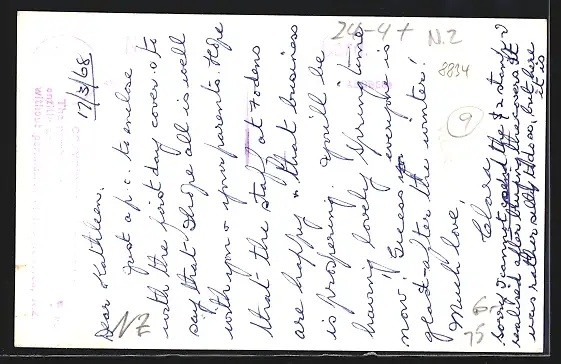 17/3/68
Dear Kathleen.
Just a p.c. to enclose
with the first day cover & to
say that I hope all is well
with you & your parents. Hope
that the staff at Fodens
are happy & that business
is prospering. You'll be
having lovely Spring time
now. Guess everyone is
glad after the winter!
Much love,
Clara
Sorry I cannot send the $2 stamp I
realised after the covers it
was rather silly to do so, but here
it is
24-4+
N.Z
8834
9
NZ
6-
75